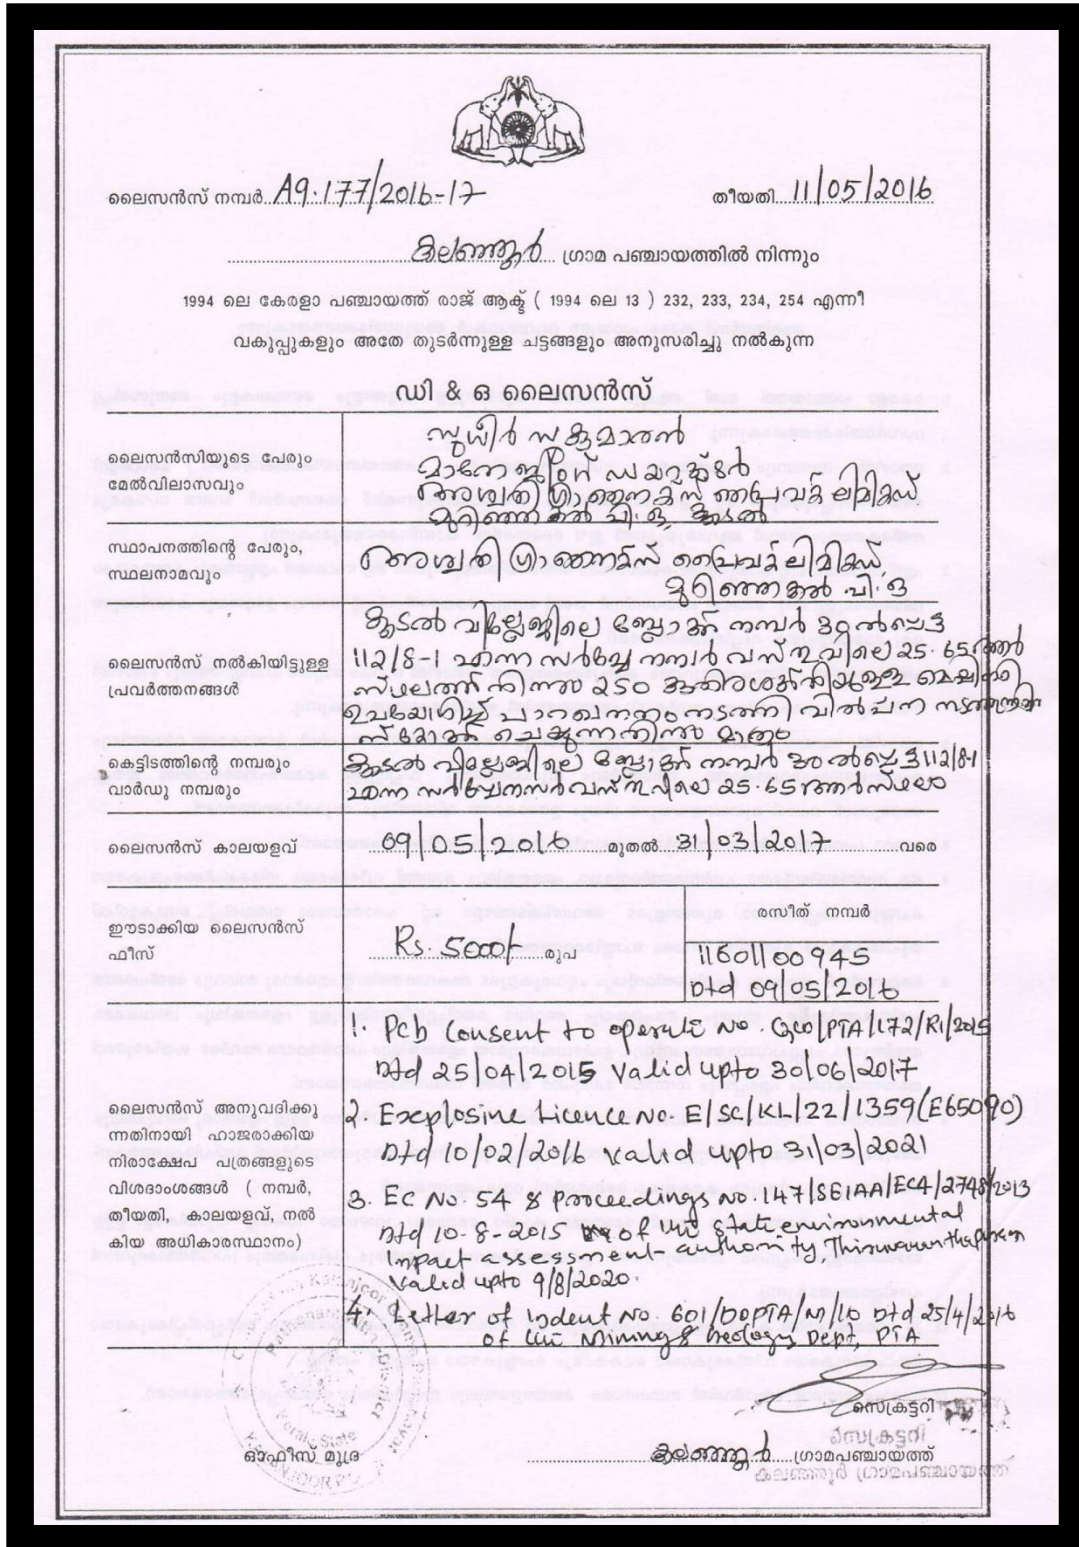 ലൈസൻസ് നമ്പർ A9-177/2016-17 തീയതി 11/05/2016
കലഞ്ഞൂർ ഗ്രാമ പഞ്ചായത്തിൽ നിന്നും
1994 ലെ കേരളാ പഞ്ചായത്ത് രാജ് ആക്ട് ( 1994 ലെ 13 ) 232, 233, 234, 254 എന്നീ
വകുപ്പുകളും അതേ തുടർന്നുള്ള ചട്ടങ്ങളും അനുസരിച്ചു നൽകുന്ന
ഡി & ഒ ലൈസൻസ്
ലൈസൻസിയുടെ പേരും
മേൽവിലാസവും
സുധീർ സുകുമാരൻ
മാനേജിംഗ് ഡയറക്ടർ
അശ്വതി ലിമിറ്റഡ്
മുറിഞ്ഞകൽ പി.ഒ, കൂടൽ
സ്ഥാപനത്തിന്റെ പേരും,
സ്ഥലനാമവും
അശ്വതി പ്രൈവറ്റ് ലിമിറ്റഡ്,
മുറിഞ്ഞകൽ പി.ഒ
ലൈസൻസ് നൽകിയിട്ടുള്ള
പ്രവർത്തനങ്ങൾ
കൂടൽ വില്ലേജിലെ ബ്ലോക്ക് നമ്പർ 30 ൽപ്പെട്ട
112/8-1 എന്ന സർവ്വേ നമ്പർ വസ്തുവിലെ 25.65 ആർ
സ്ഥലത്ത് നിന്നും 250 കുതിരശക്തിയുള്ള മെഷിനറി
ഉപയോഗിച്ച് പാറഖനനം നടത്തി വിൽപ്പന
ചെയ്യുന്നതിന്നു മാത്രം
കെട്ടിടത്തിന്റെ നമ്പരും
വാർഡു നമ്പരും
കൂടൽ വില്ലേജിലെ ബ്ലോക്ക് നമ്പർ 30 ൽപ്പെട്ട 112/8-1
എന്ന വസ്തുവിലെ 25.65 ആർ സ്ഥലം
ലൈസൻസ് കാലയളവ് 09/05/2016 മുതൽ 31/03/2017 വരെ
ഈടാക്കിയ ലൈസൻസ്
ഫീസ്
Rs. 5000/- രൂപ
രസീത് നമ്പർ
11601100945
Dtd 09/05/2016
ലൈസൻസ് അനുവദിക്കു
ന്നതിനായി ഹാജരാക്കിയ
നിരാക്ഷേപ പത്രങ്ങളുടെ
വിശദാംശങ്ങൾ ( നമ്പർ,
തീയതി, കാലയളവ്, നൽ
കിയ അധികാരസ്ഥാനം)
1. Pcb Consent to operate No. /PTA/172/R1/2015
Dtd 25/04/2015 Valid upto 30/06/2017
2 Explosive Licence No. E/SC/KL/22/1359(E65090)
Dtd 10/02/2016 Valid upto 31/03/2021
3. EC No. 54 & Proceedings No. 147/SEIAA/EC4/2748/2013
Dtd 10-8-2015 of the state environmental
impact assessment authority, Thiruvananthapuram
Valid upto 9/8/2020.
4. Letter of Indent No. 601/DOPTA/M/16 Dtd 25/4/2016
of the Mining & Geology Dept, PTA
സെക്രട്ടറി
സെക്രട്ടറി
ഓഫീസ് മുദ്ര
കലഞ്ഞൂർ ഗ്രാമപഞ്ചായത്ത്
കലഞ്ഞൂർ ഗ്രാമപഞ്ചായത്ത്